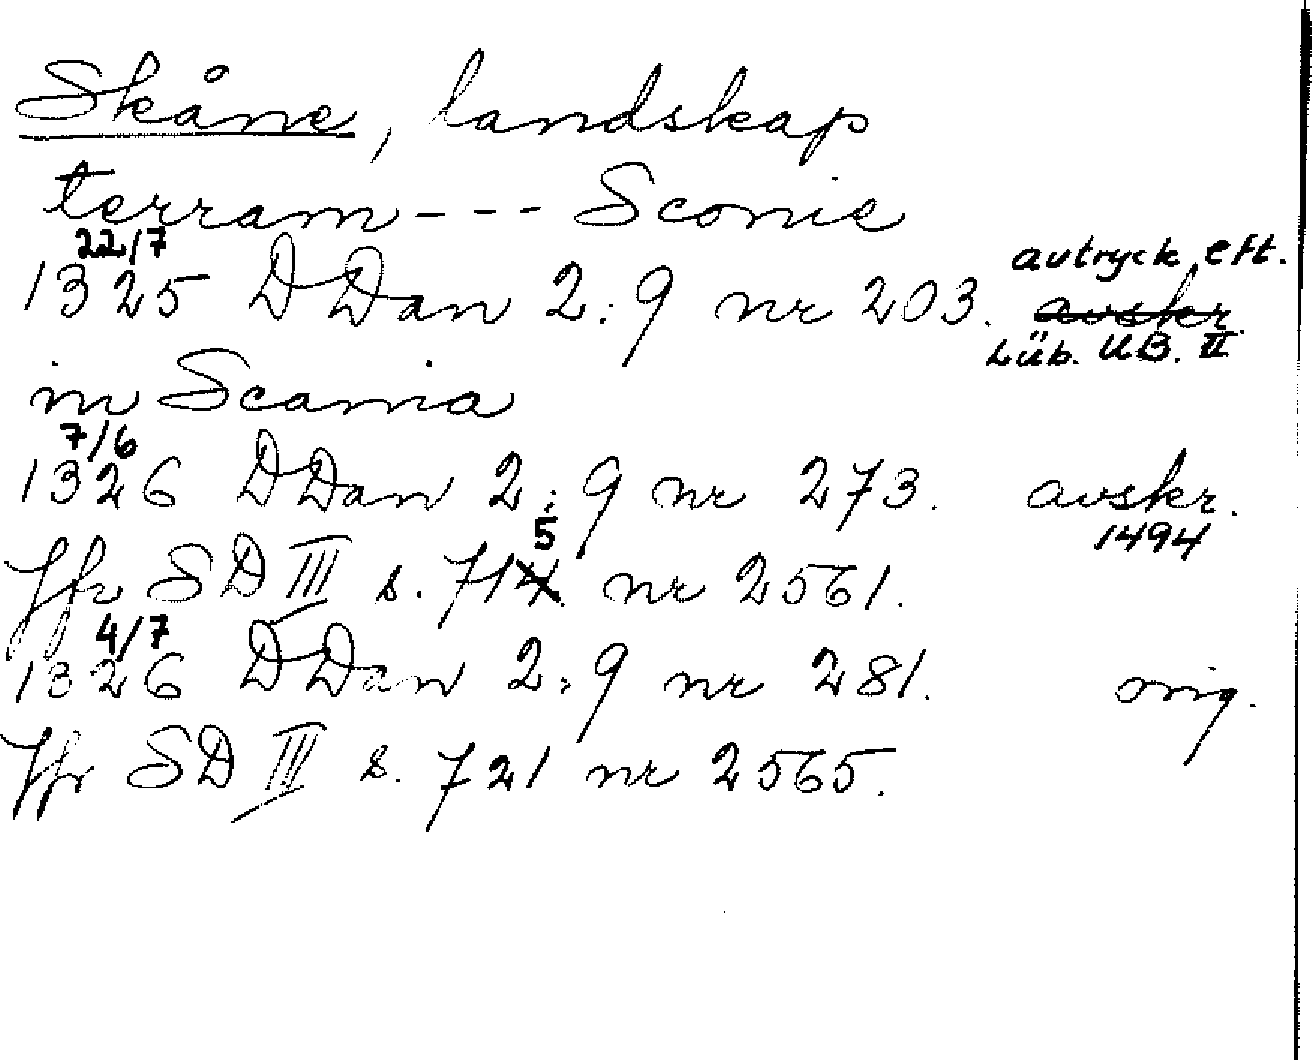 Skåne, landskap
terram - - - Sconie
22/7
1325 DDan 2:9 nr 203. avtryck eft.
avskr.
Lüb. UB. II
in Scania
7/6
1326 DDan 2:9 nr 273. avskr.
1494
5
Jfr SD III s. 714 nr 2561.
4/7
1326 DDan 2:9 nr 281. orig.
Jfr SD III s. 721 nr 2565.